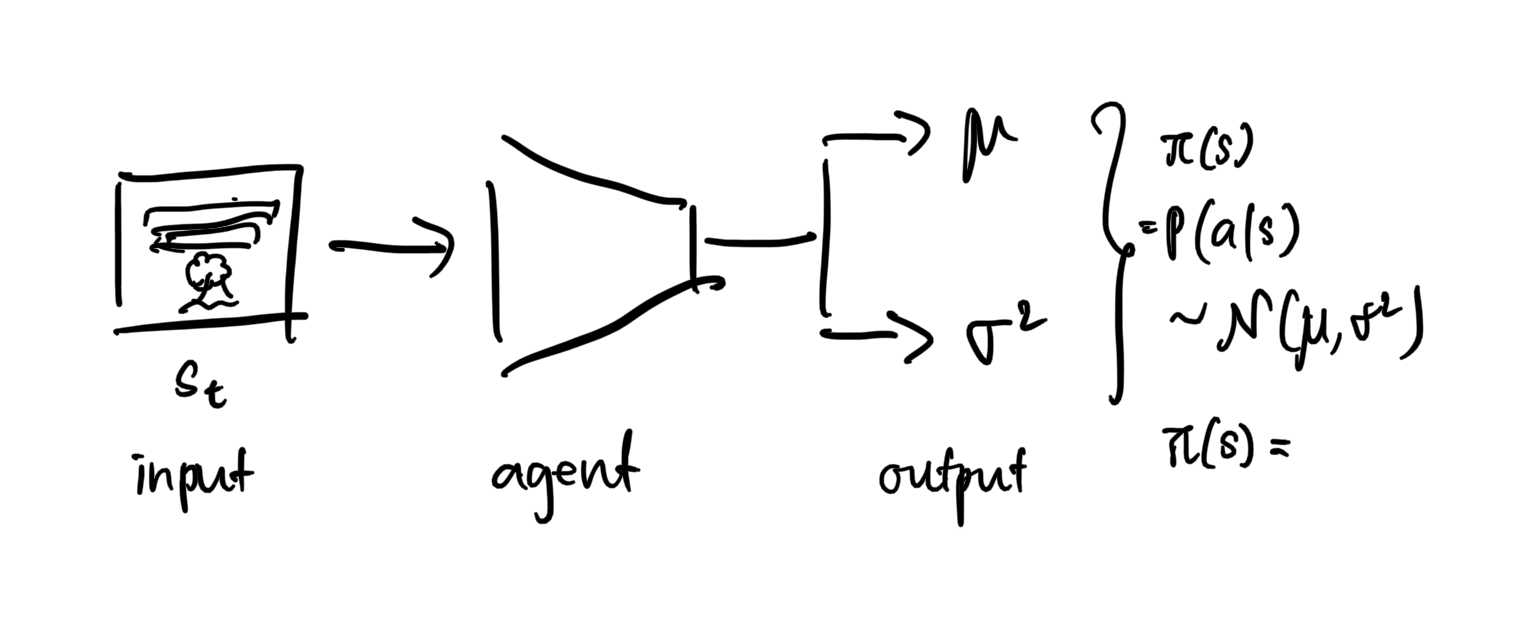 s_t
input
agent
μ
σ²
output
π(s)
= p(a|s)
~ N(μ, σ²)
π(s) =